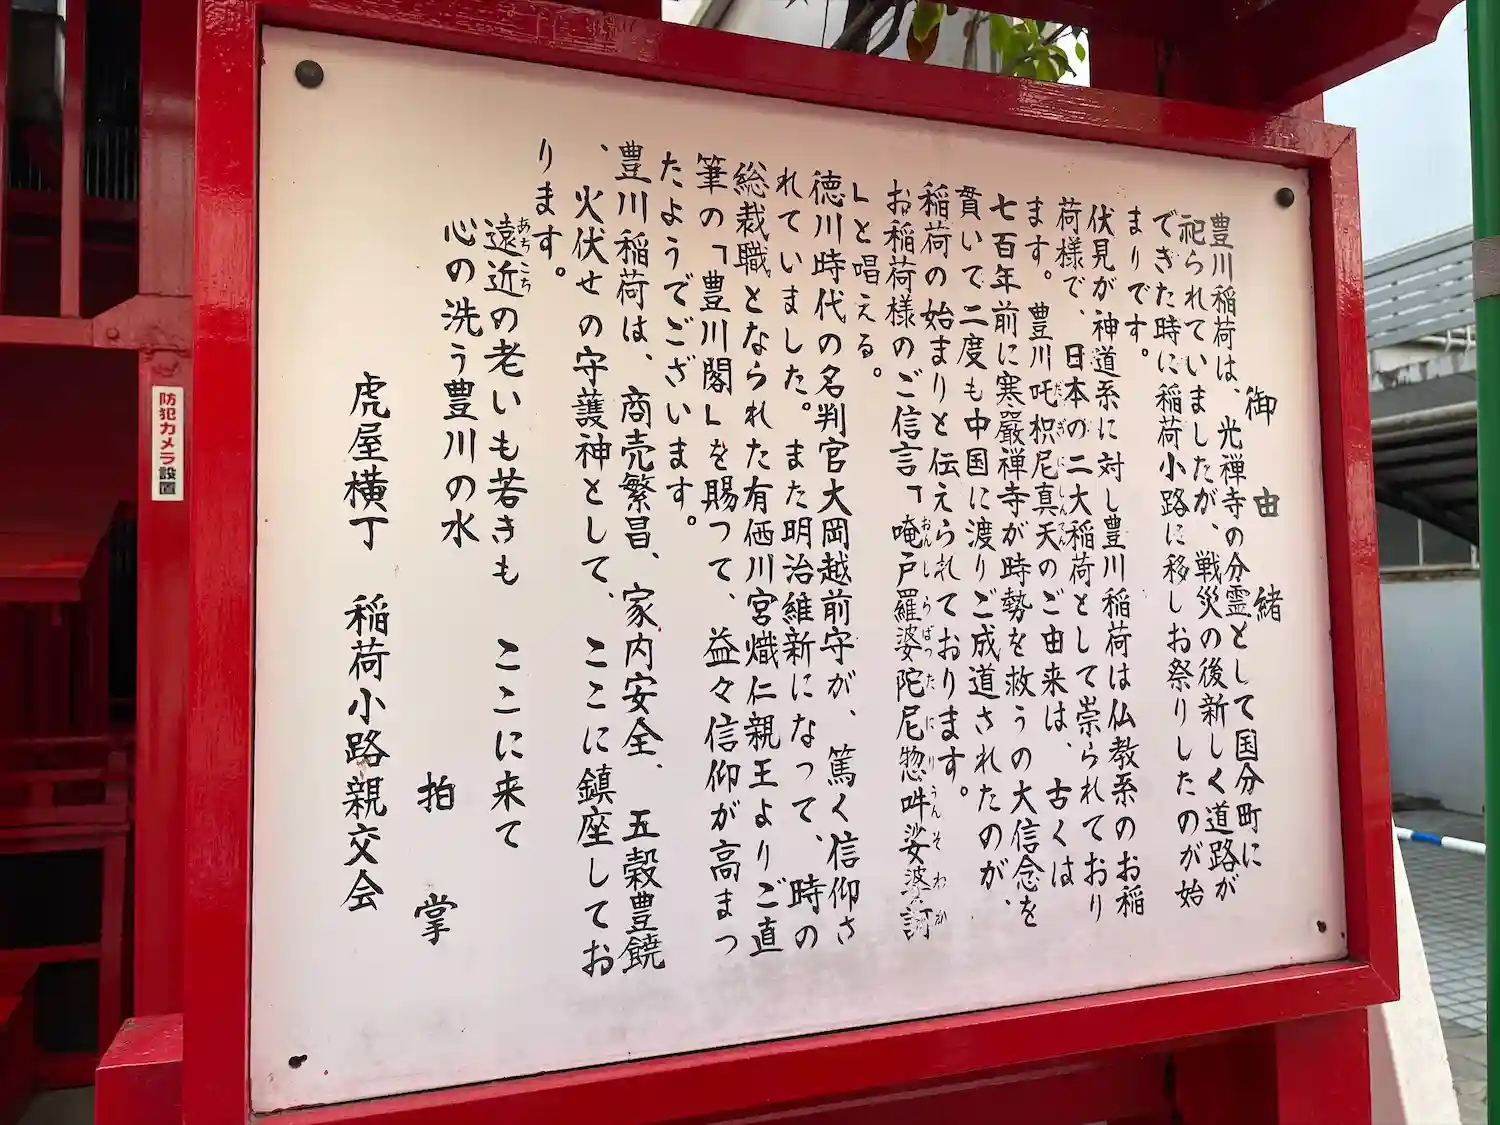 御由緒
豊川稲荷は、光禅寺の分霊として国分町に
祀られていましたが、戦災の後新しく道路が
できた時に稲荷小路に移しお祭りしたのが始
まりです。
伏見が神道系に対し豊川稲荷は仏教系のお稲
荷様で、日本の二大稲荷として崇られており
ます。豊川吒枳尼真天のご由来は、古くは
だぎにしんてん
七百年前に寒巖禅寺が時勢を救うの大信念を
貫いで二度も中国に渡りご成道されたのが、
稲荷の始まりと伝えられております。
お稲荷様のご信言「唵尸羅婆陀尼惣吽娑婆訶
おんしらばったにりうんそわか
」と唱える。
徳川時代の名判官大岡越前守が、篤く信仰さ
れていました。また明治維新になって、時の
総裁職となられた有栖川宮熾仁親王よりご直
筆の「豊川閣」を賜って、益々信仰が高まっ
たようでございます。
豊川稲荷は、商売繁昌、家内安全、五穀豊饒
、火伏せの守護神として、ここに鎮座してお
ります。
遠近の老いも若きも ここに来て
あちこち
心の洗う豊川の水
拍掌
虎屋横丁 稲荷小路親交会
防犯カメラ設置